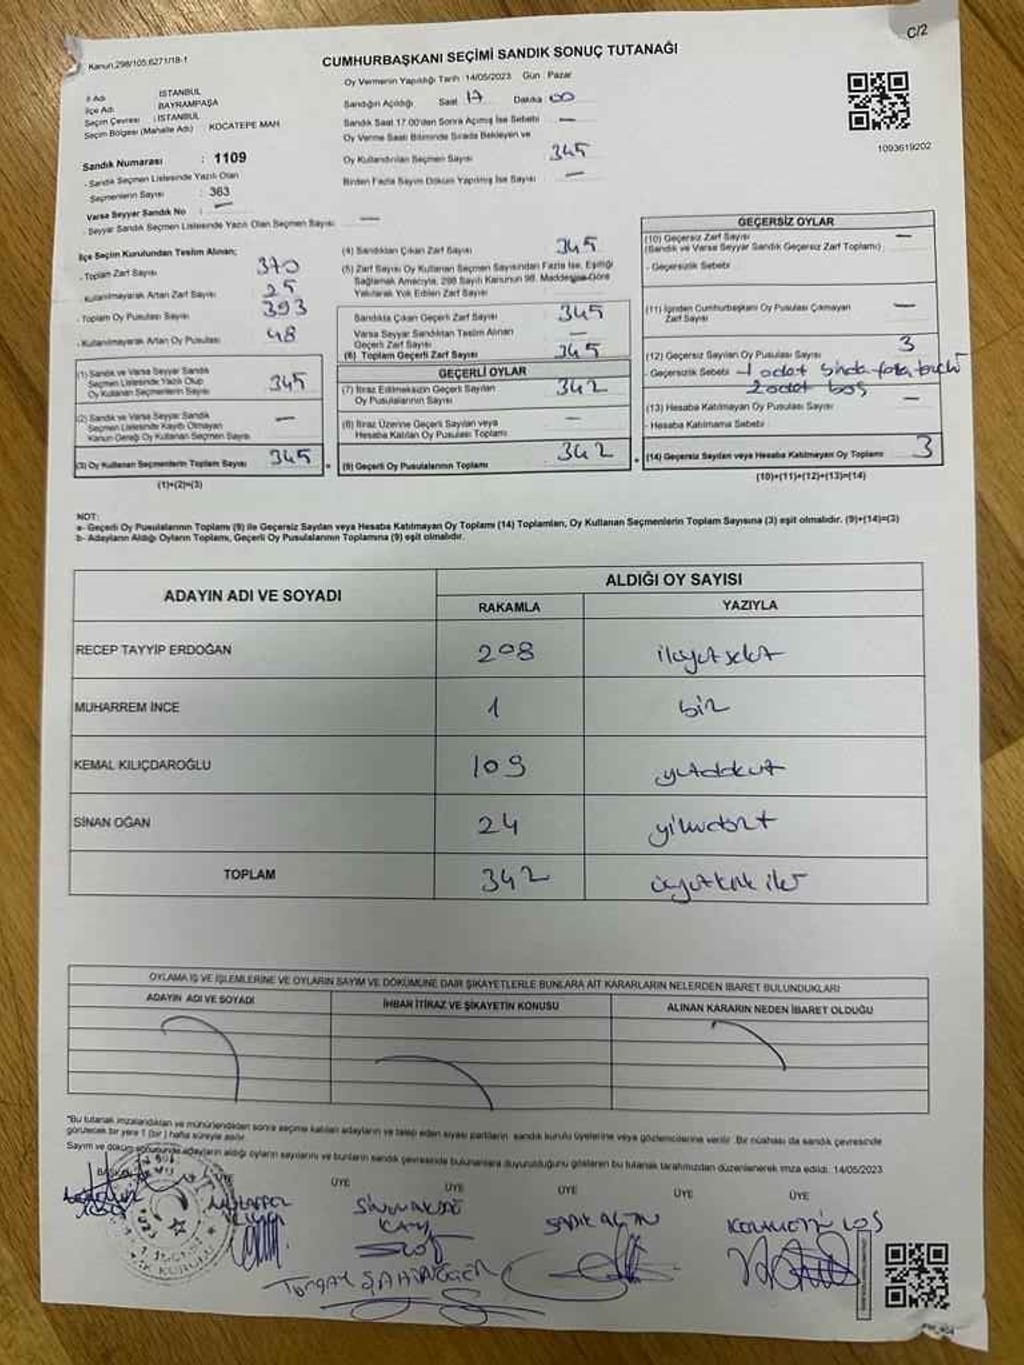 C/2
Kanun:298/105;6271/18-1
CUMHURBAŞKANI SEÇİMİ SANDIK SONUÇ TUTANAĞI
Oy Vermenin Yapıldığı Tarih : 14/05/2023 Gün : Pazar
İl Adı : İSTANBUL
İlçe Adı : BAYRAMPAŞA
Seçim Çevresi : İSTANBUL
Seçim Bölgesi (Mahalle Adı) : KOCATEPE MAH
Sandık Numarası : 1109
- Sandık Seçmen Listesinde Yazılı Olan
- Seçmenlerin Sayısı : 363
Varsa Seyyar Sandık No : —
- Seyyar Sandık Seçmen Listesinde Yazılı Olan Seçmen Sayısı : —
Sandığın Açıldığı Saat 17 Dakika 00
Sandık Saat 17.00'den Sonra Açılmış İse Sebebi —
Oy Verme Saati Bitiminde Sırada Bekleyen ve
Oy Kullandırılan Seçmen Sayısı 345
Birden Fazla Sayım Döküm Yapılmış İse Sayısı —
1093619202
İlçe Seçim Kurulundan Teslim Alınan;
- Toplam Zarf Sayısı 370
- Kullanılmayarak Artan Zarf Sayısı 25
- Toplam Oy Pusulası Sayısı 393
- Kullanılmayarak Artan Oy Pusulası 48
(1) Sandık ve Varsa Seyyar Sandık
Seçmen Listesinde Yazılı Olup
Oy Kullanan Seçmen Sayısı 345
(2) Sandık ve Varsa Seyyar Sandık
Seçmen Listesinde Kayıtlı Olmayan
Kanun Gereği Oy Kullanan Seçmen Sayısı —
(3) Oy Kullanan Seçmenlerin Toplam Sayısı 345
(1)+(2)=(3)
(4) Sandıktan Çıkan Zarf Sayısı 345
(5) Zarf Sayısı Oy Kullanan Seçmen Sayısından Fazla İse, Eşitliği
Sağlamak Amacıyla, 298 Sayılı Kanunun 98. Maddesine Göre
Yakılarak Yok Edilen Zarf Sayısı
Sandıkta Çıkan Geçerli Zarf Sayısı 345
Varsa Seyyar Sandıktan Teslim Alınan
Geçerli Zarf Sayısı —
(6) Toplam Geçerli Zarf Sayısı 345
GEÇERLİ OYLAR
(7) İtiraz Edilmeksizin Geçerli Sayılan
Oy Pusulalarının Sayısı 342
(8) İtiraz Üzerine Geçerli Sayılan veya
Hesaba Katılan Oy Pusulası Toplamı —
(9) Geçerli Oy Pusulalarının Toplamı 342
GEÇERSİZ OYLAR
(10) Geçersiz Zarf Sayısı —
(Sandık ve Varsa Seyyar Sandık Geçersiz Zarf Toplamı)
- Geçersizlik Sebebi
(11) İçinden Cumhurbaşkanı Oy Pusulası Çıkmayan
Zarf Sayısı —
(12) Geçersiz Sayılan Oy Pusulası Sayısı 3
- Geçersizlik Sebebi 1 adet
2 adet boş
(13) Hesaba Katılmayan Oy Pusulası Sayısı —
- Hesaba Katılmama Sebebi
(14) Geçersiz Sayılan veya Hesaba Katılmayan Oy Toplamı 3
(10)+(11)+(12)+(13)=(14)
NOT:
a- Geçerli Oy Pusulalarının Toplamı (9) ile Geçersiz Sayılan veya Hesaba Katılmayan Oy Toplamı (14) Toplamları, Oy Kullanan Seçmenlerin Toplam Sayısına (3) eşit olmalıdır. (9)+(14)=(3)
b- Adayların Aldığı Oyların Toplamı, Geçerli Oy Pusulalarının Toplamına (9) eşit olmalıdır.
ADAYIN ADI VE SOYADI
ALDIĞI OY SAYISI
RAKAMLA YAZIYLA
RECEP TAYYİP ERDOĞAN 208 ikiyüzsekiz
MUHARREM İNCE 1 bir
KEMAL KILIÇDAROĞLU 109 yüzdokuz
SİNAN OĞAN 24 yirmidört
TOPLAM 342 üçyüzkırk iki
OYLAMA İŞ VE İŞLEMLERİNE VE OYLARIN SAYIM VE DÖKÜMÜNE DAİR ŞİKAYETLERLE BUNLARA AİT KARARLARIN NELERDEN İBARET BULUNDUKLARI
ADAYIN ADI VE SOYADI
İHBAR İTİRAZ VE ŞİKAYETİN KONUSU
ALINAN KARARIN NEDEN İBARET OLDUĞU
*Bu tutanak imzalandıktan ve mühürlendikten sonra seçime katılan adayların ve talep eden siyasi partilerin sandık kurulu üyelerine veya gözlemcilerine verilir. Bir nüshası da sandık çevresinde
görülecek bir yere 1 (bir) hafta süreyle asılır.
Sayım ve döküm sonucunda adayların aldığı oyların sayılarını ve bunların sandık çevresinde bulunanlara duyurulduğunu gösteren bu tutanak tarafımızdan düzenlenerek imza edildi. 14/05/2023
ÜYE ÜYE ÜYE ÜYE ÜYE